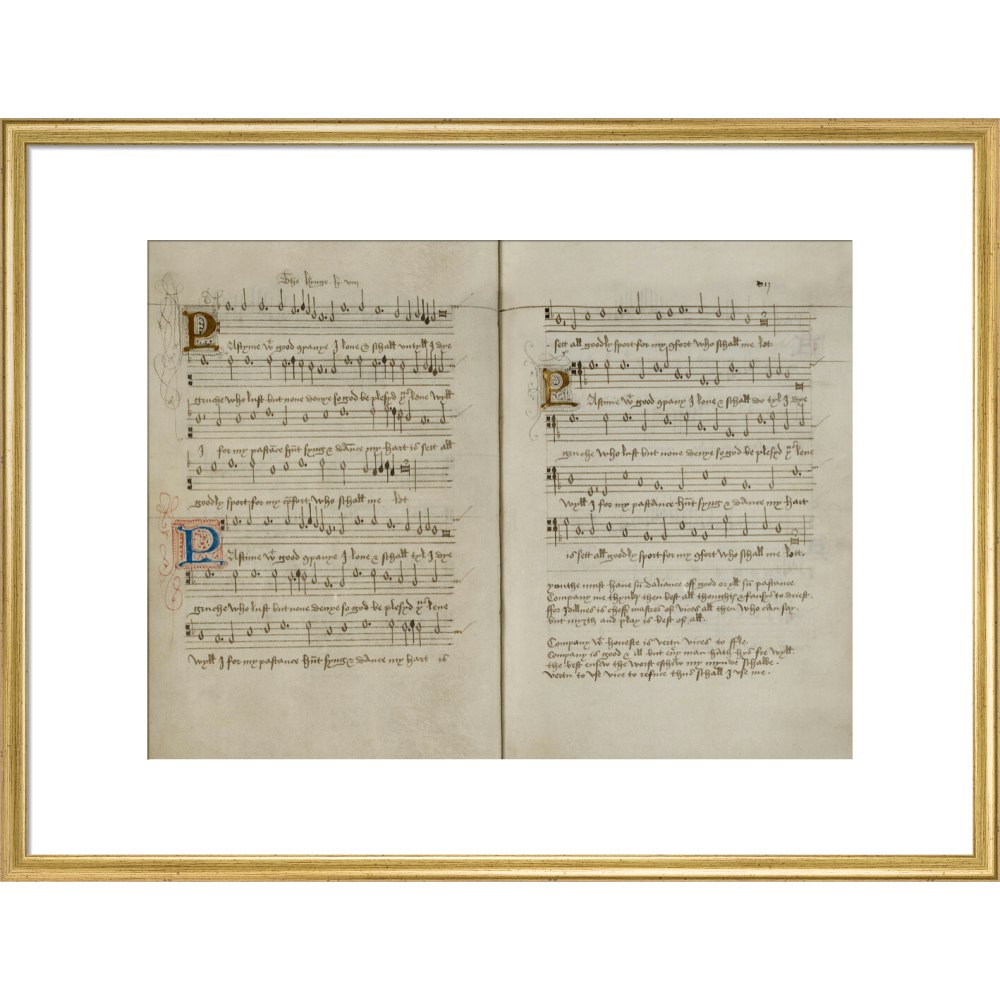 The kynge . h . viii
Pastyme wt good companye I love & schall untyll I dye
gruche who lust but none denye so god be plesyd thus leve wyll
I for my pastance hunt syng & dance my hart is sett all
goodly sport for my comfort who schall me let
Pastyme wt good companye I love & schall tyl I dye
gruche who lust but none denye so god be plesyd thus leve
wyll I for my pastance hunt syng & dance my hart is
sett all goodly sport for my comfort who schall me let
Pastyme wt good companye I love & schall do tyl I dye
gruche who lust but none denye so god be plesyd thus leve
wyll I for my pastance hunt syng & dance my hart
is sett all goodly sport for my comfort who schall me lett.
youthe must have sum daliance off good or yll sum pastance.
Company me thynks then best all thoughts & fansys to deiest.
ffor Idillnes is cheff mastres of vices all then who can say.
but myrth and play is best of all.
Company wt honeste is vertu vices to ffle.
Company is good & ill but every man hath hys fre wyll.
the best ensew the worst eschew my mynde schalbe.
vertu to use vice to refuce thus schall I use me.